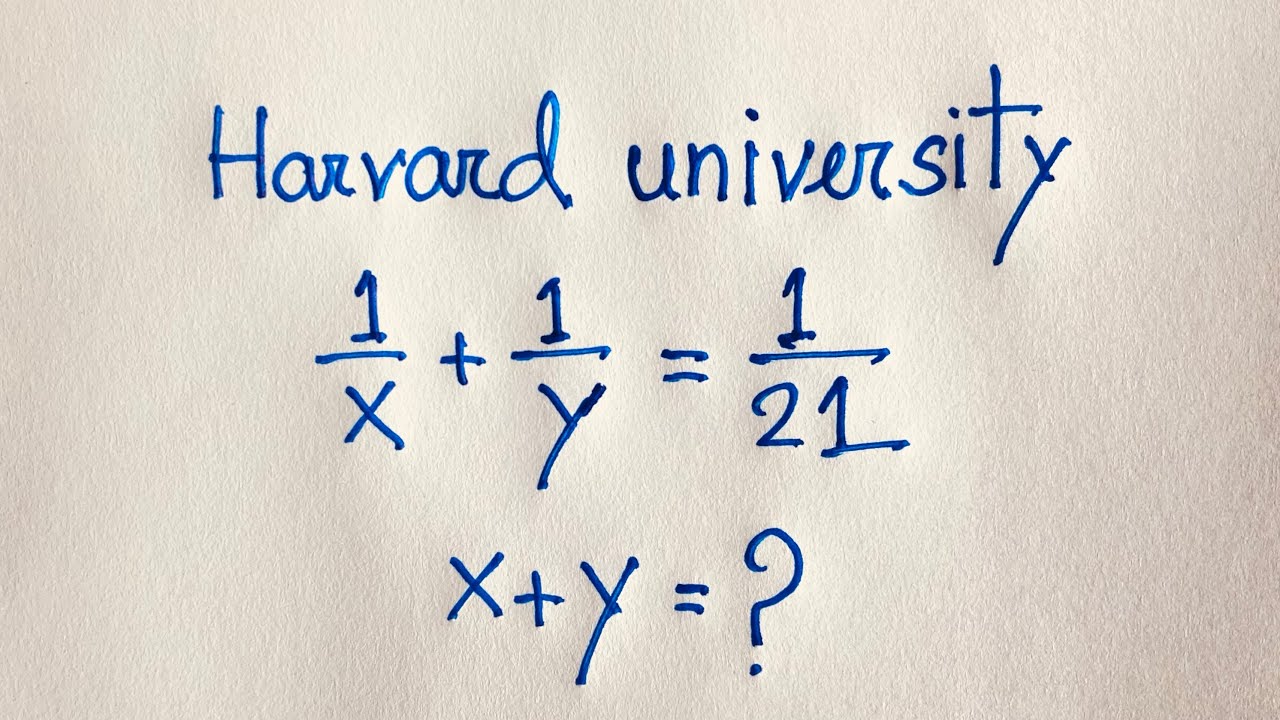 Harvard university
1/x + 1/y = 1/21
x+y = ?